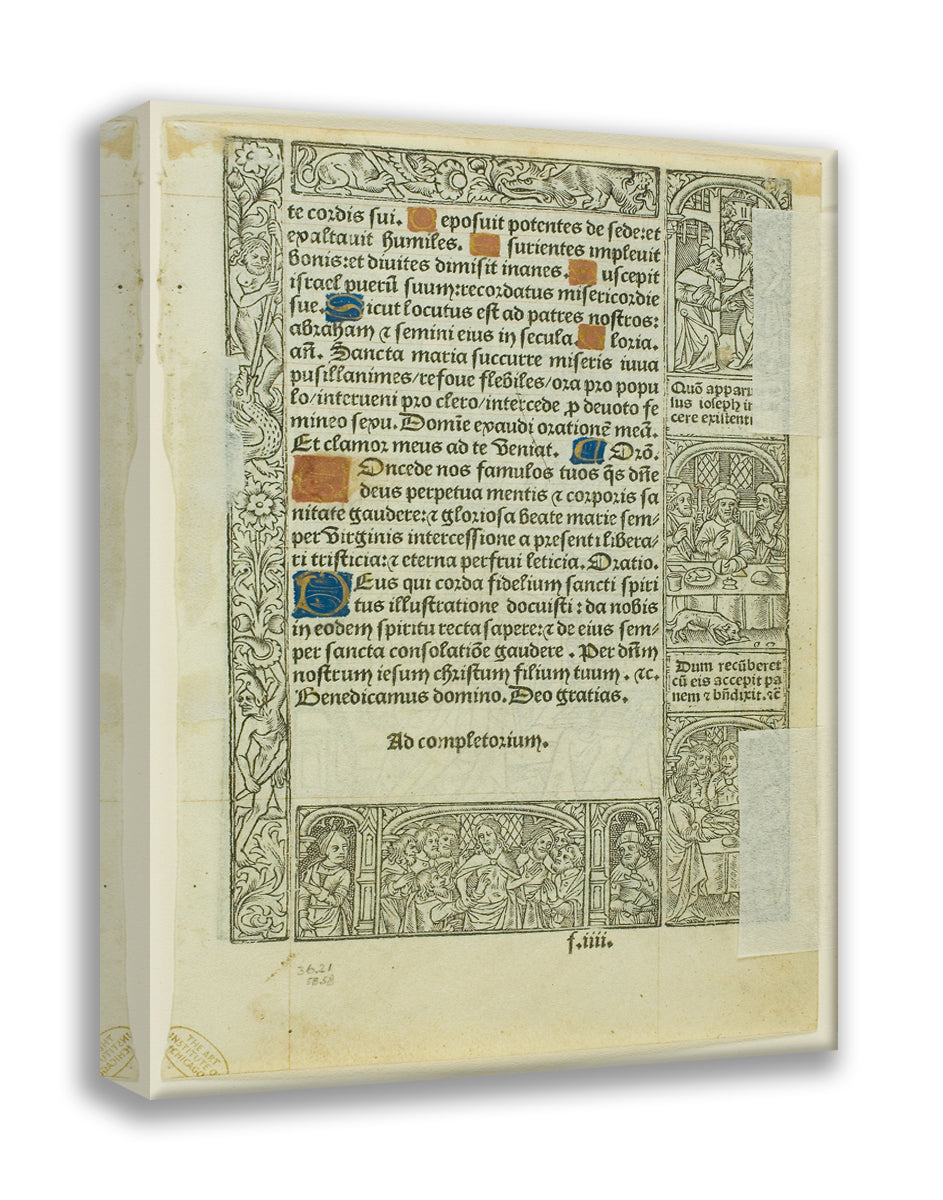 te cordis sui. Deposuit potentes de sede:et
exaltauit humiles. Esurientes impleuit
bonis:et diuites dimisit inanes. Suscepit
israel puerũ suum:recordatus misericordie
sue. Sicut locutus est ad patres nostros:
abraham ⁊ semini eius in secula. Gloria.
añ. Sancta maria succurre miseris iuua
pusillanimes/refoue flebiles/ora pro popu
lo/interueni pro clero/intercede ꝓ deuoto fe
mineo sexu. Domīe exaudi orationē meā.
Et clamor meus ad te veniat. Orō.
Concede nos famulos tuos q̄s dn̄e
deus perpetua mentis ⁊ corporis sa
nitate gaudere:⁊ gloriosa beate marie sem-
per virginis intercessione a presenti libera-
ri tristicia:⁊ eterna perfrui leticia. Oratio.
Deus qui corda fidelium sancti spiri
tus illustratione docuisti : da nobis
in eodem spiritu recta sapere:⁊ de eius sem-
per sancta consolatiōe gaudere . Per dn̄m
nostrum iesum christum filium tuum . ⁊c.
Benedicamus domino. Deo gratias.
Ad completorium.
Quō apparu
ius ioseph in
cere existenti
Dum recūberet
cū eis accepit pa
nem ⁊ bn̄dixit. ⁊c̄
f.iiii.
36.21
58.58
THE ART
INSTITUTE O
CHICAGO